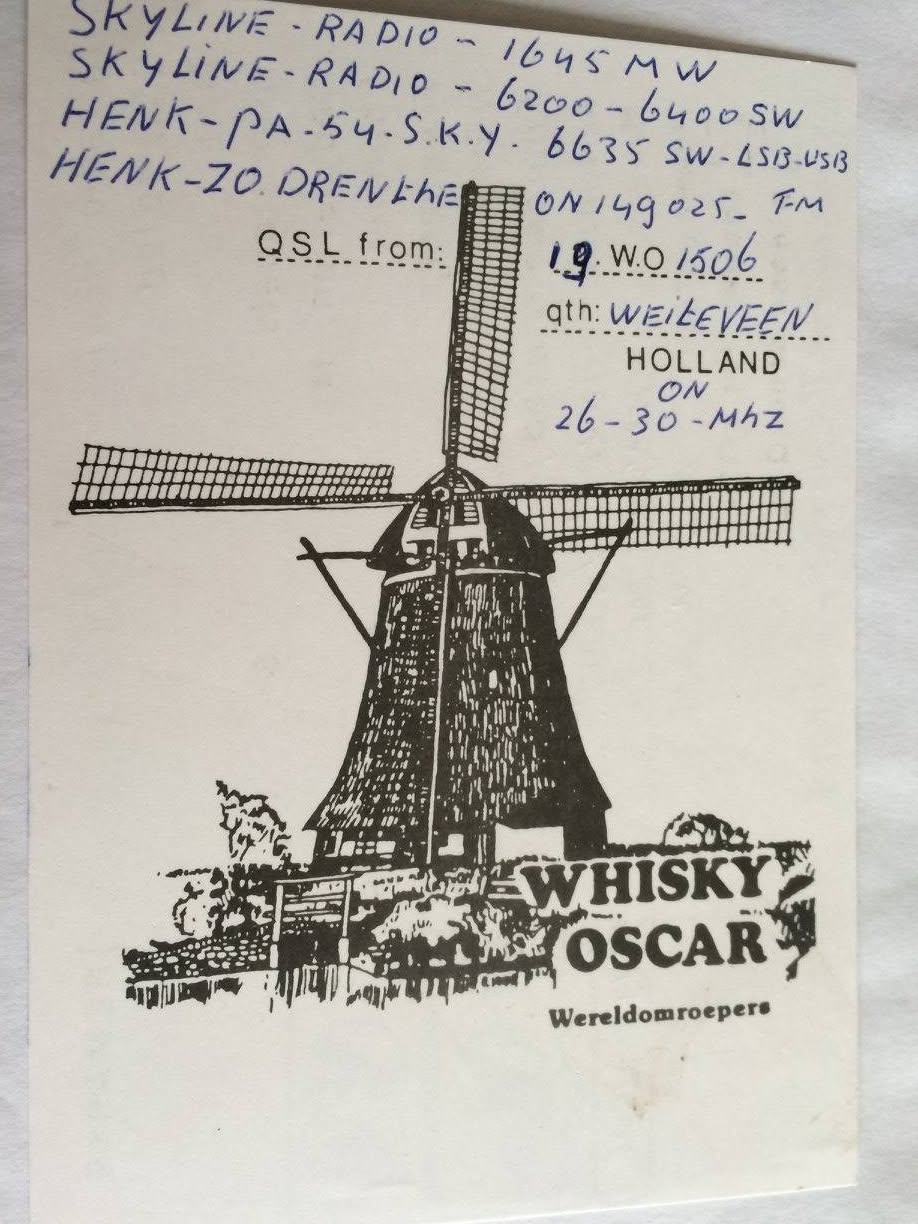 SKYLINE - RADIO - 1645 MW
SKYLINE - RADIO - 6200 - 6400 SW
HENK - PA - 54 - S.K.Y. 6635 SW - LSB - USB
HENK - ZO. DRENthE ON 149025 - FM
QSL from: 19. W.O 1506
qth: WEITEVEEN
HOLLAND
ON
26 - 30 - Mhz
WHISKY
OSCAR
Wereldomroepers